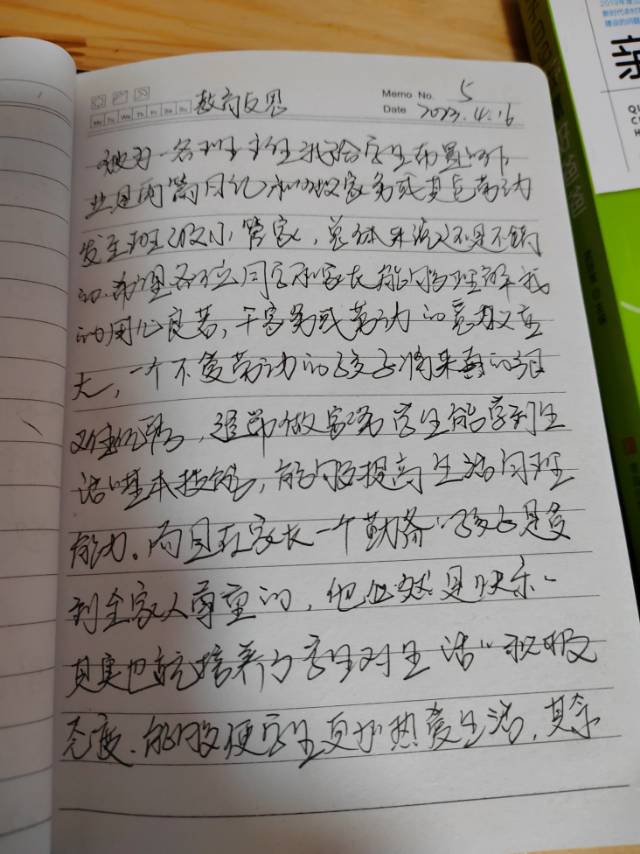 教育反思
Memo No. 5
Date 2023.4.16
做为一名班主任我给学生布置的作
业是周篇日记和做家务或其它劳动
发至班级小管家，总体来说还是不错
的.希望各位同学和家长能够理解我
的用心良苦，干家务或劳动的意义重
大，一个不爱劳动的孩子将来真的很
难优秀，适节做家务学生能学到生
活的基本技能，能够提高生活自理
能力.而且在家长一个勤劳的孩子是受
到全家人尊重的，他必然是快乐的
其实也就培养了学生对生活的积极
态度.能够使学生更加热爱生活，其余